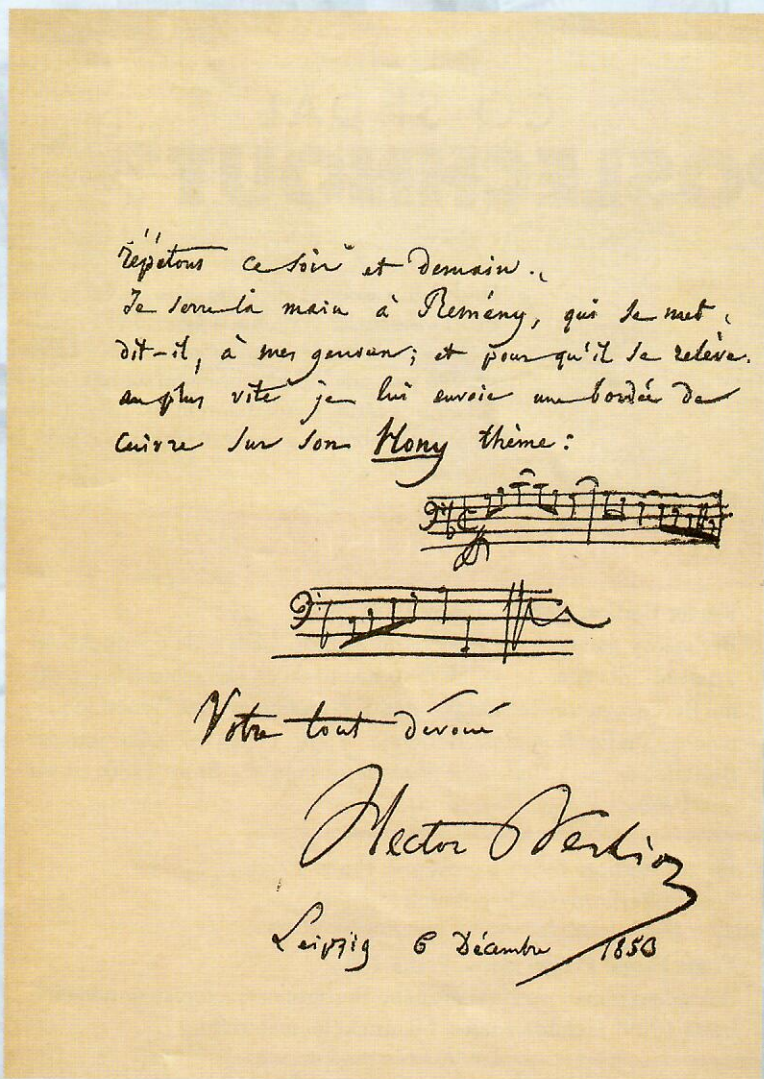 répétons ce soir et demain.
Je serre la main à Remény, qui se met,
dit-il, à mes genoux; et pour qu'il se relève
au plus vite je lui envoie une bordée de
cuivre sur son Hony thème:
Votre tout dévoué
Hector Berlioz
Leipzig 6 Décembre 1853